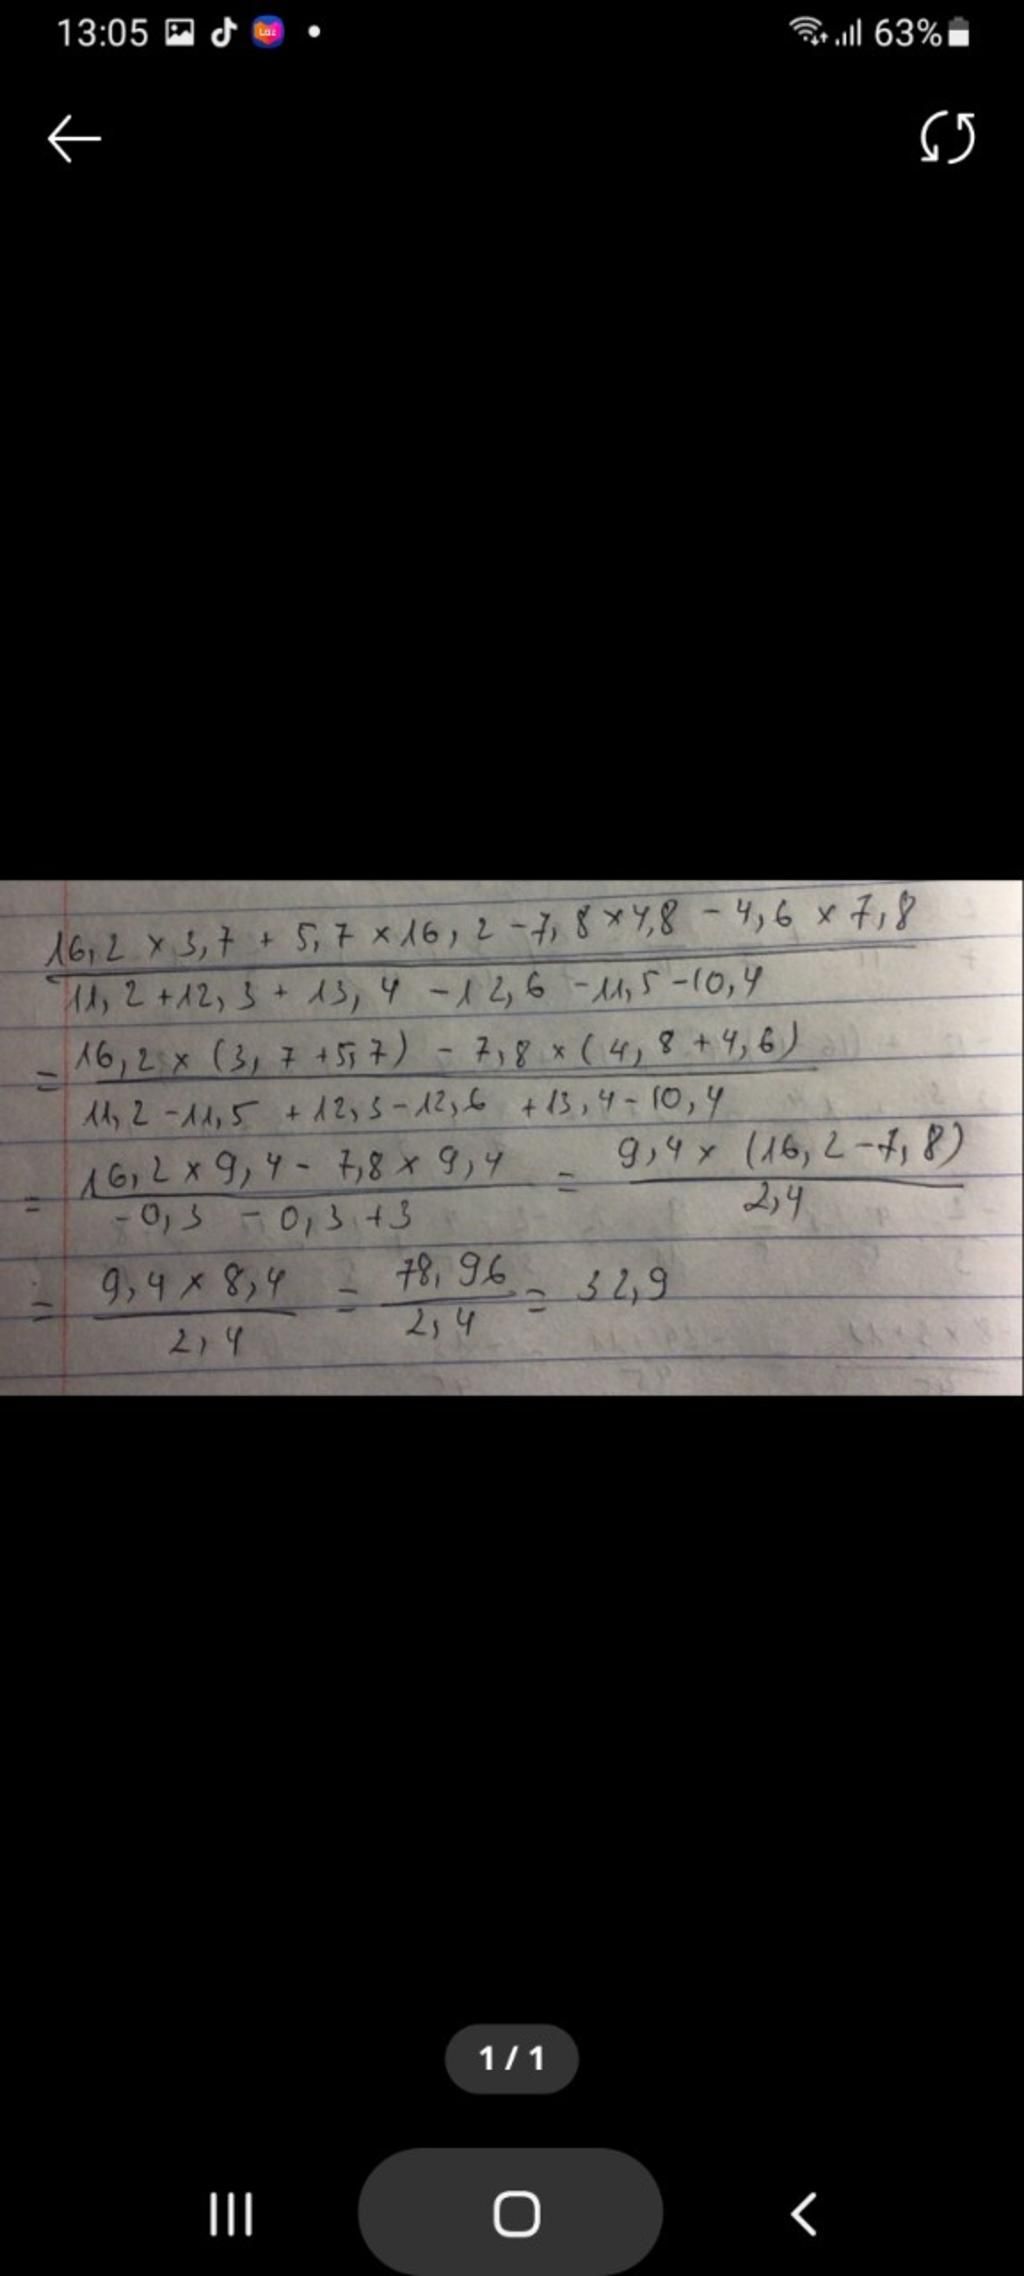 13:05 63%
16,2 × 3,7 + 5,7 × 16,2 - 7,8 × 4,8 - 4,6 × 7,8
11,2 + 12,3 + 13,4 - 12,6 - 11,5 - 10,4
= 16,2 × (3,7 + 5,7) - 7,8 × (4,8 + 4,6)
11,2 - 11,5 + 12,3 - 12,6 + 13,4 - 10,4
= 16,2 × 9,4 - 7,8 × 9,4 = 9,4 × (16,2 - 7,8)
-0,3 - 0,3 + 3 2,4
= 9,4 × 8,4 = 78,96 = 32,9
2,4 2,4
1 / 1